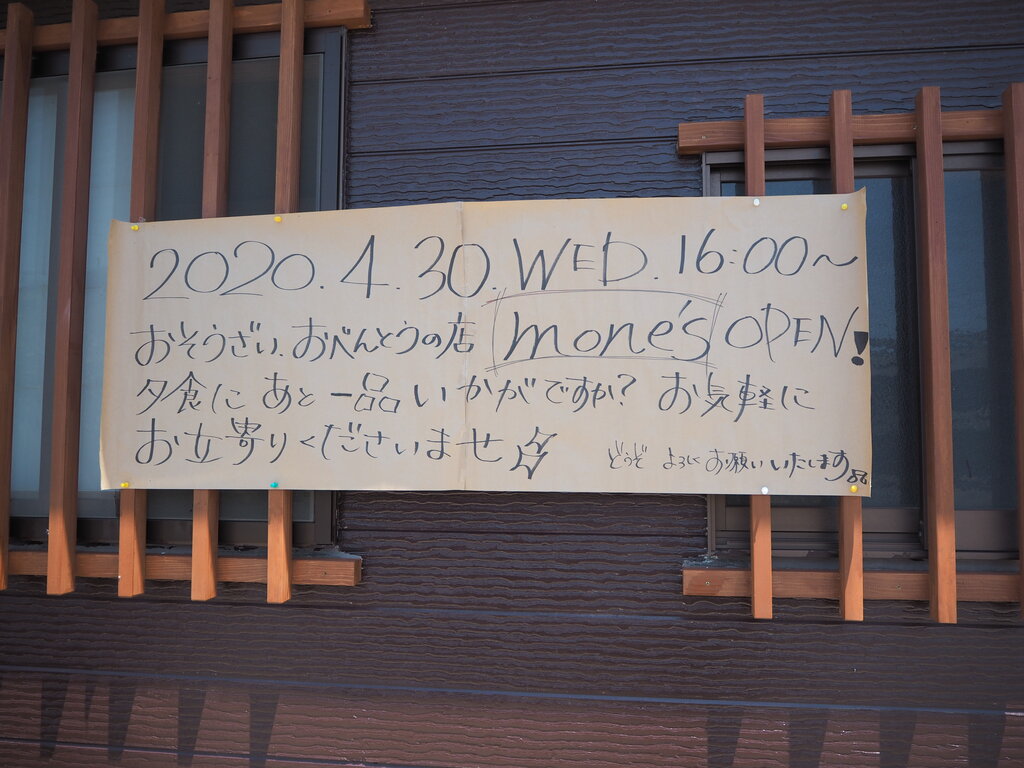 2020.4.30.WED.16:00～
おそうざい、おべんとうの店 mone's OPEN!
夕食に あと一品 いかがですか？ お気軽に
お立寄りくださいませ☆
どうぞ よろしくお願いいたします